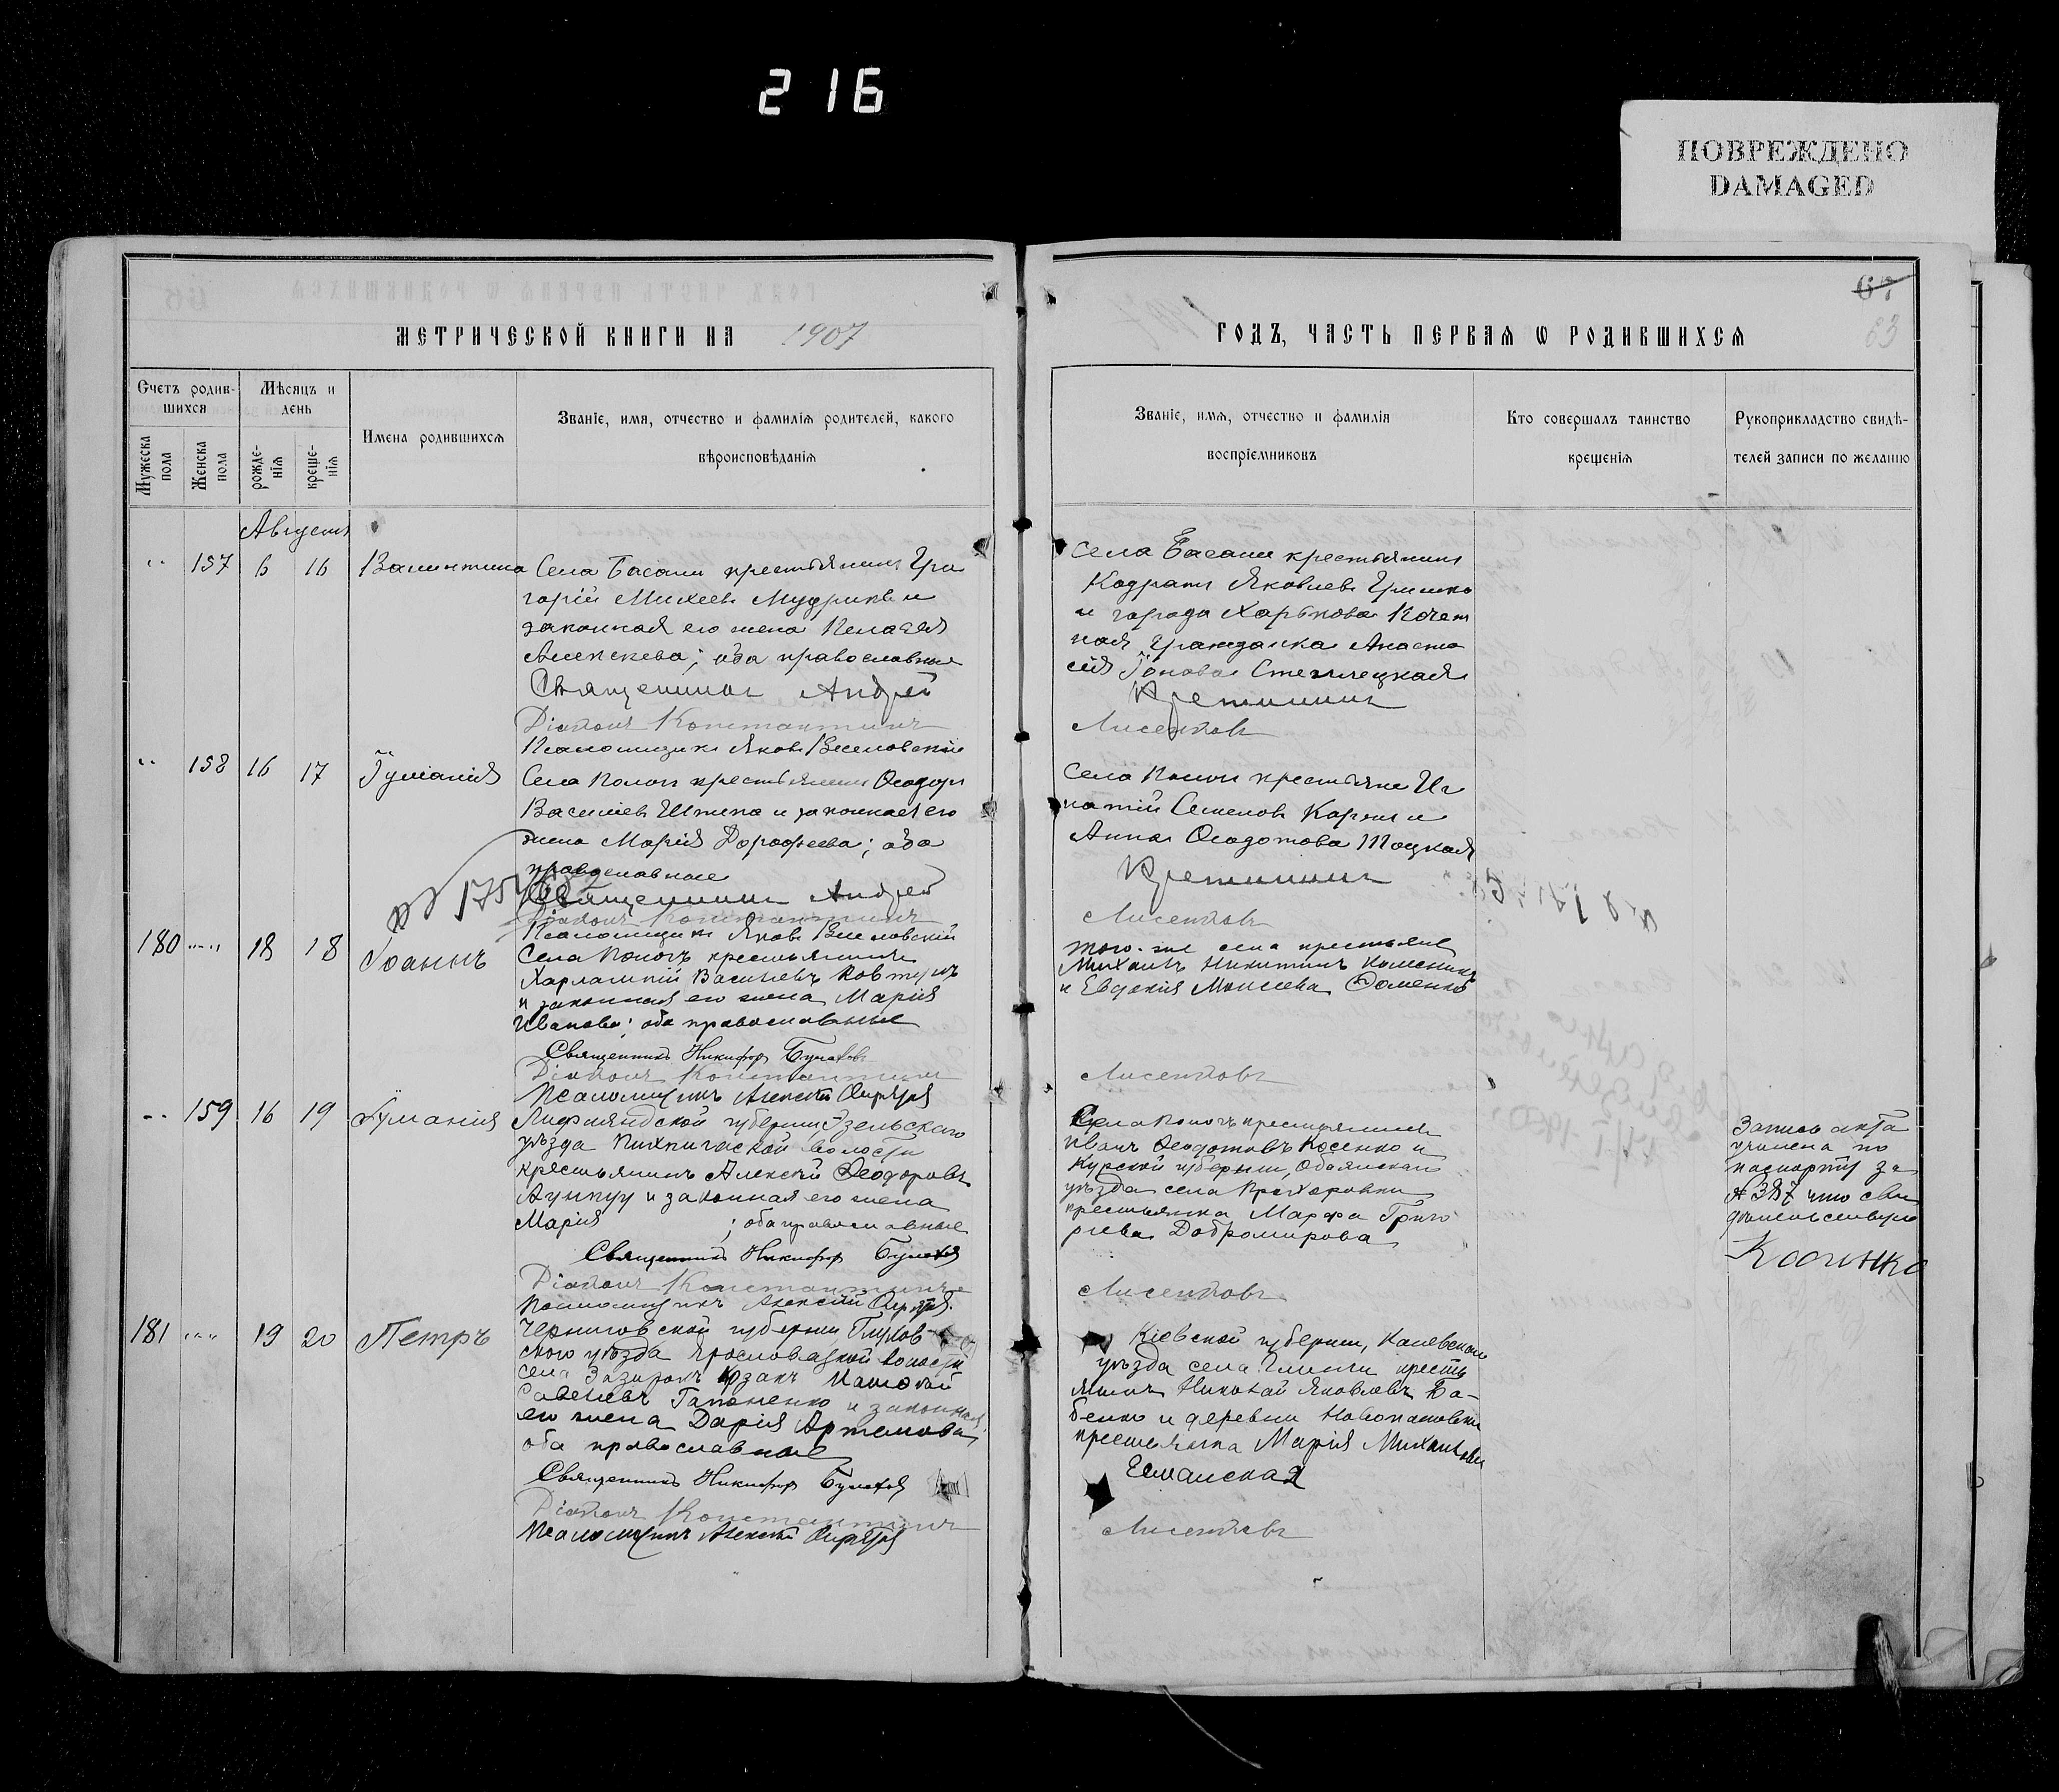 216
ПОВРЕЖДЕНО
DAMAGED
67
83
МЕТРИЧЕСКОЙ КНИГИ НА 1907
ГОДЪ, ЧАСТЬ ПЕРВАЯ Ѡ РОДИВШИХСЯ
Счетъ родив-
шихся
Мужеска
пола
Женска
пола
Мѣсяцъ и
день
рожде-
нія
креще-
нія
Имена родившихся
Званіе, имя, отчество и фамилія родителей, какого
вѣроисповѣданія
Званіе, имя, отчество и фамилія
воспріемниковъ
Кто совершалъ таинство
крещенія
Рукоприкладство свидѣ-
телей записи по желанію
Августъ
157 6 16 Валентина
Села Басани крестьянинъ Гри
горій Михеевъ Мудрикъ и
законная его жена Пелагея
Алексеева; оба православные
Священникъ Андрей
Діаконъ Константинъ
Псаломщикъ Яковъ Веселовскій
Села Басани крестьянинъ
Кодратъ Яковлевъ Гришко
и города Харькова Почет
ная гражданка Анаста
сія Іонова Стеллецкая
Кретининъ
Лисенковъ
158 16 17 Іуліанія
Села Пологъ крестьянинъ Феодоръ
Васильевъ Шпека и законная его
жена Марія Дорофеева; оба
православные
Священникъ Андрей
Діаконъ Константинъ
Псаломщикъ Яковъ Веселовскій
Села Пологъ крестьяне Иг
натій Семеновъ Карпъ и
Анна Феодотова Тоцкая
Кретининъ
Лисенковъ
180 18 18 Іоаннъ
Села Пологъ крестьянинъ
Харлампій Васильевъ Ковтунъ
и законная его жена Марія
Иванова; оба православные
Священникъ Никифоръ Булахов
Діаконъ Константинъ
Псаломщикъ Алексѣй
того-же села крестьяне
Михаилъ Никитинъ
и Евдокія Моисеева Доменко
Лисенковъ
159 16 19 Іуліанія
Лифляндской губерніи Эзельскаго
уѣзда волости
крестьянинъ Алексѣй Феодоровъ
и законная его жена
Марія ; оба православные
Священникъ Никифоръ
Діаконъ Константинъ
Псаломщикъ Алексѣй
Села Пологъ крестьянинъ
Иванъ Феодотовъ Косенко и
Курской губерніи, Обоянскаго
уѣзда села Прохоровки
крестьянка Марфа Григо
рьева Добромирова
Лисенковъ
Запись акта
учинена по
паспорту за
№ 387 что сви
дѣтельствую
181 19 20 Петръ
Черниговской губерніи Глухов-
скаго уѣзда Ярославской волости
села козакъ
Савельевъ Гапоненко и законная
его жена Дарія Артемова,
оба православные
Священникъ Никифоръ
Діаконъ Константинъ
Псаломщикъ Алексѣй
Кіевской губерніи, Каневскаго
уѣзда села крестья
янинъ Николай Яковлевъ Ба-
бенко и деревни
крестьянка Марія Михайлова
Есманская
Лисенковъ